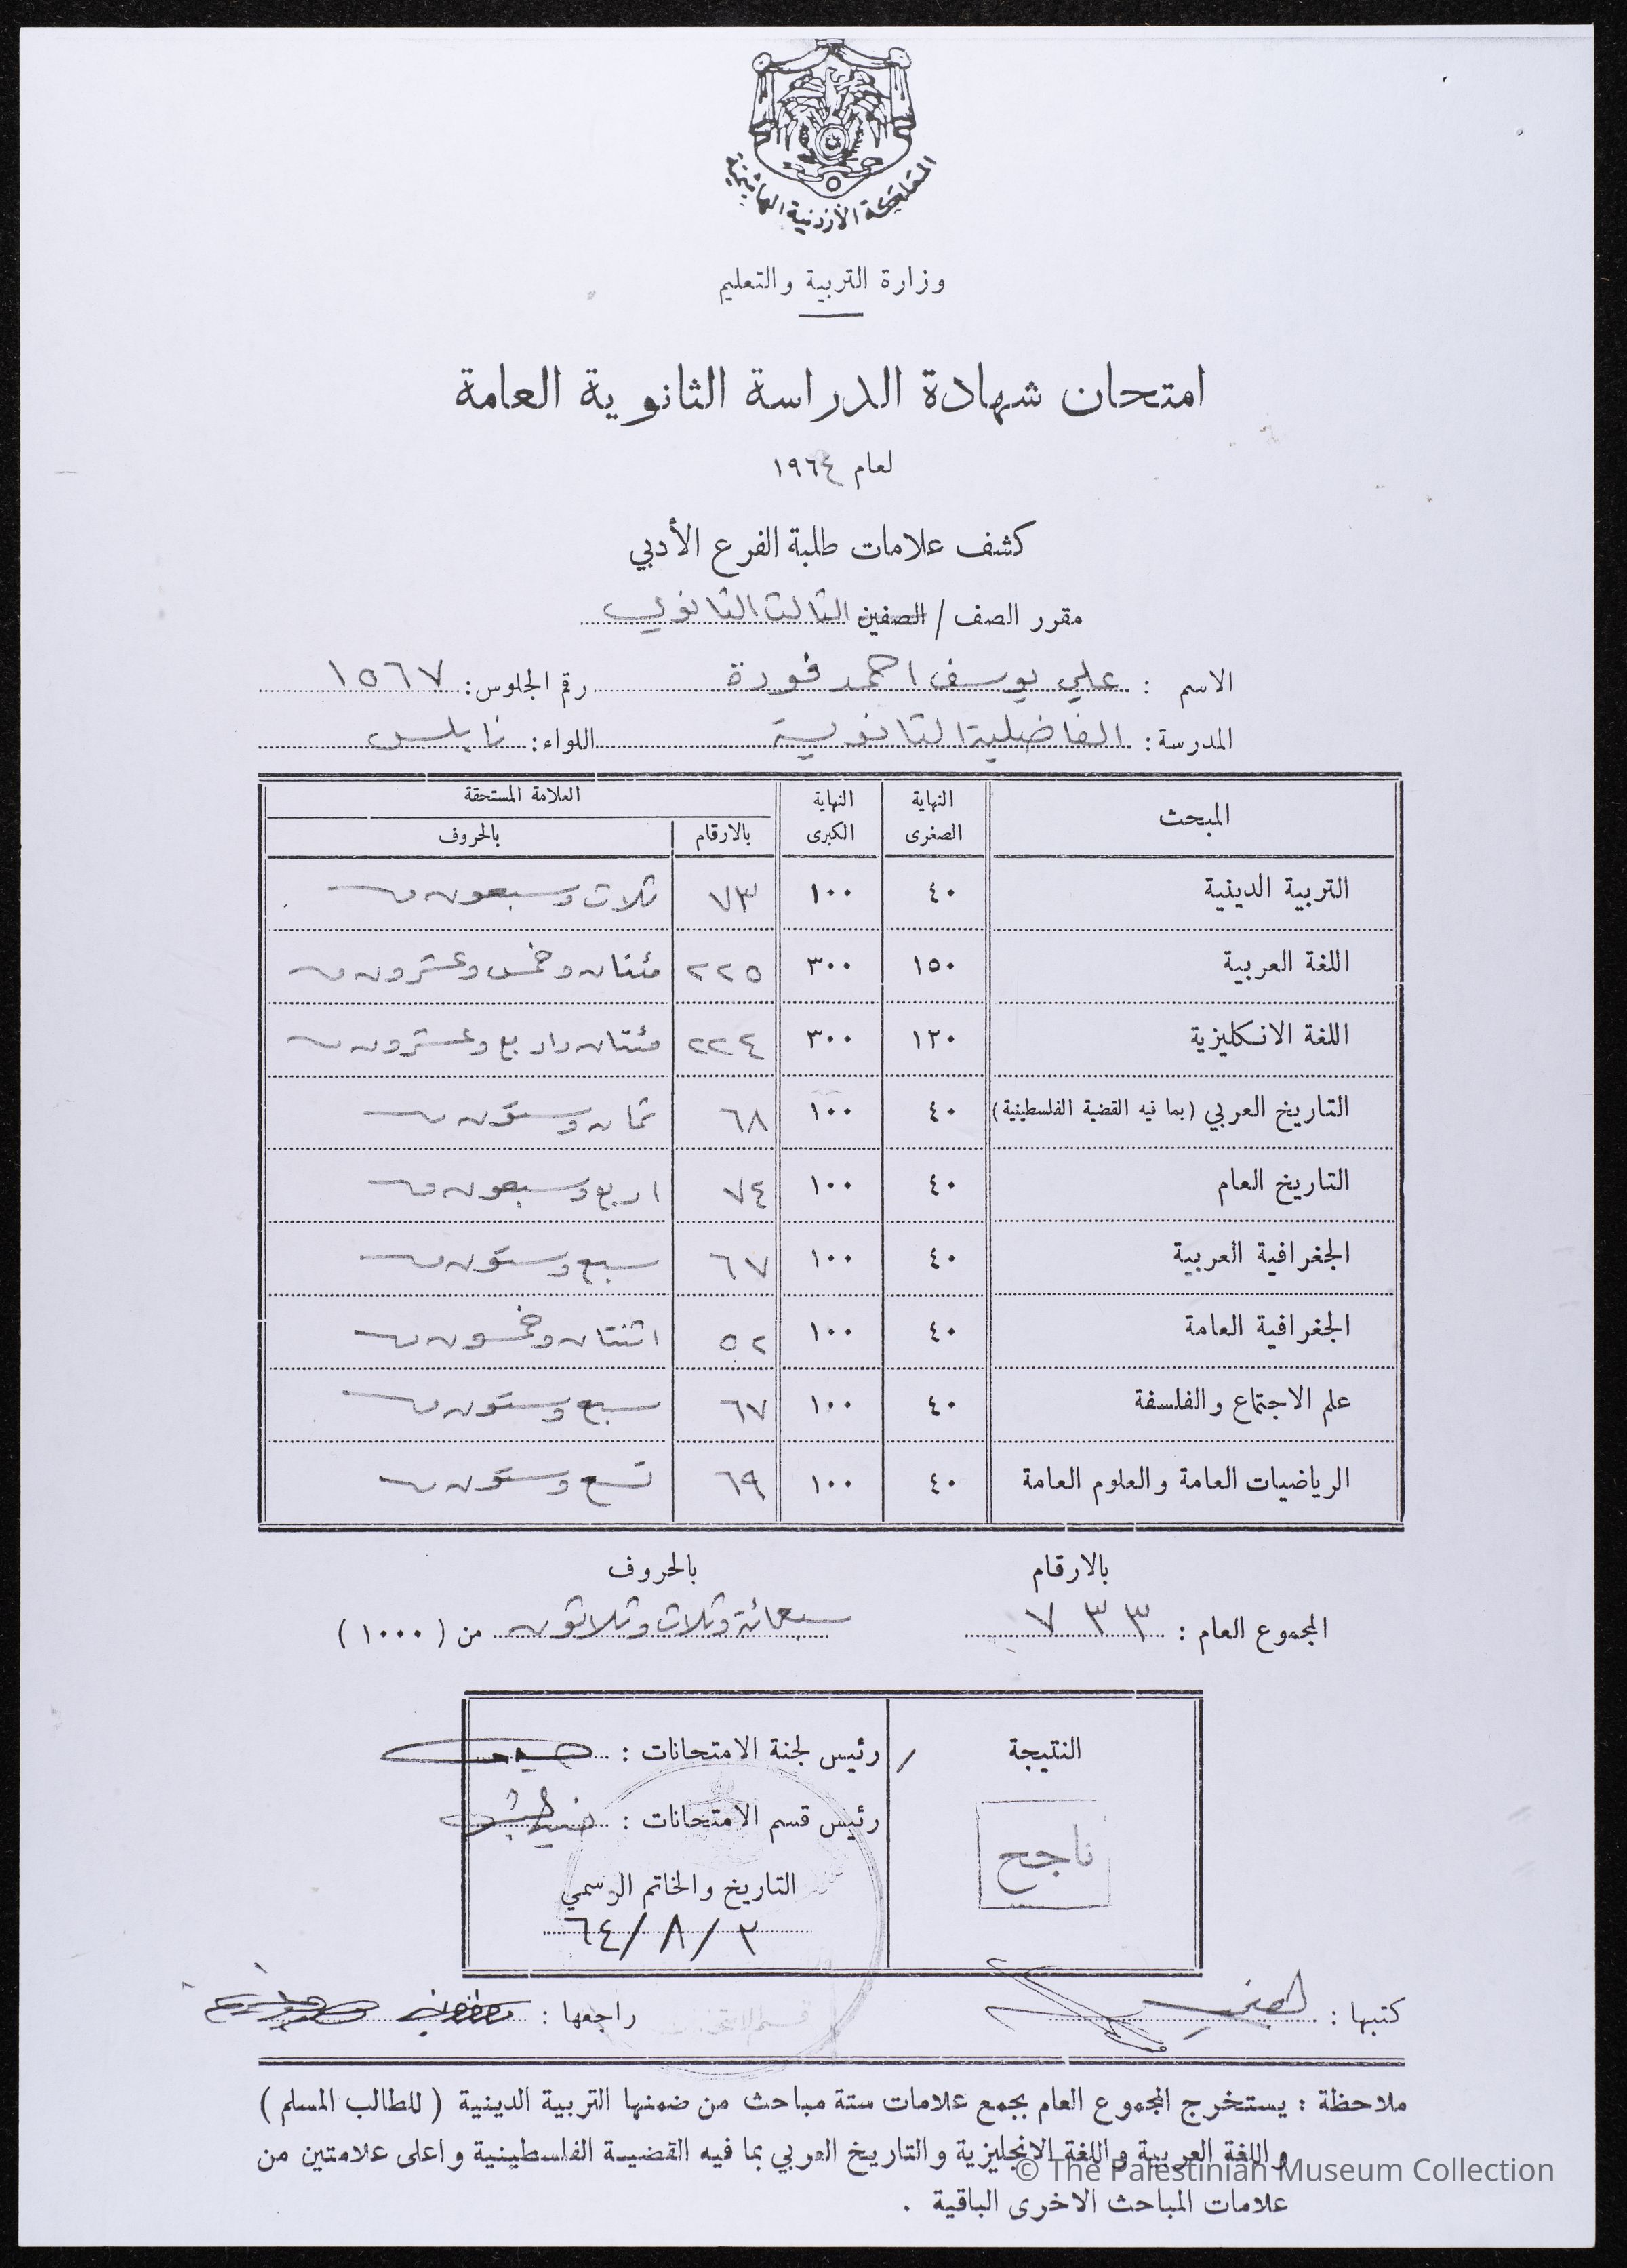 المملكة الأردنية الهاشمية
وزارة التربية والتعليم
امتحان شهادة الدراسة الثانوية العامة
لعام ١٩٦٤
كشف علامات طلبة الفرع الأدبي
مقرر الصف / الصفين الثالث الثانوي
الاسم : علي يوسف احمد فودة رقم الجلوس: ١٥٦٧
المدرسة : الفاضلية الثانوية اللواء: نابلس
المبحث النهاية الصغرى النهاية الكبرى العلامة المستحقة
بالارقام بالحروف
التربية الدينية ٤٠ ١٠٠ ٧٣ ثلاث وسبعون
اللغة العربية ١٥٠ ٣٠٠ ٢٢٥ مئتان وخمس وعشرون
اللغة الانكليزية ١٢٠ ٣٠٠ ٢٢٤ مئتان واربع وعشرون
التاريخ العربي (بما فيه القضية الفلسطينية) ٤٠ ١٠٠ ٦٨ ثمان وستون
التاريخ العام ٤٠ ١٠٠ ٧٤ اربع وسبعون
الجغرافية العربية ٤٠ ١٠٠ ٦٧ سبع وستون
الجغرافية العامة ٤٠ ١٠٠ ٥٢ اثنتان وخمسون
علم الاجتماع والفلسفة ٤٠ ١٠٠ ٦٧ سبع وستون
الرياضيات العامة والعلوم العامة ٤٠ ١٠٠ ٦٩ تسع وستون
بالارقام بالحروف
المجموع العام : ٧٣٣ سبعمائة وثلاث وثلاثون من (١٠٠٠)
النتيجة رئيس لجنة الامتحانات :
رئيس قسم الامتحانات :
ناجح
التاريخ والخاتم الرسمي
٢/٨/٦٤
كتبها : راجعها :
قسم الامتحانات
ملاحظة : يستخرج المجموع العام بجمع علامات ستة مباحث من ضمنها التربية الدينية ( للطالب المسلم )
واللغة العربية واللغة الانجليزية والتاريخ العربي بما فيه القضية الفلسطينية واعلى علامتين من
© The Palestinian Museum Collection
علامات المباحث الاخرى الباقية .